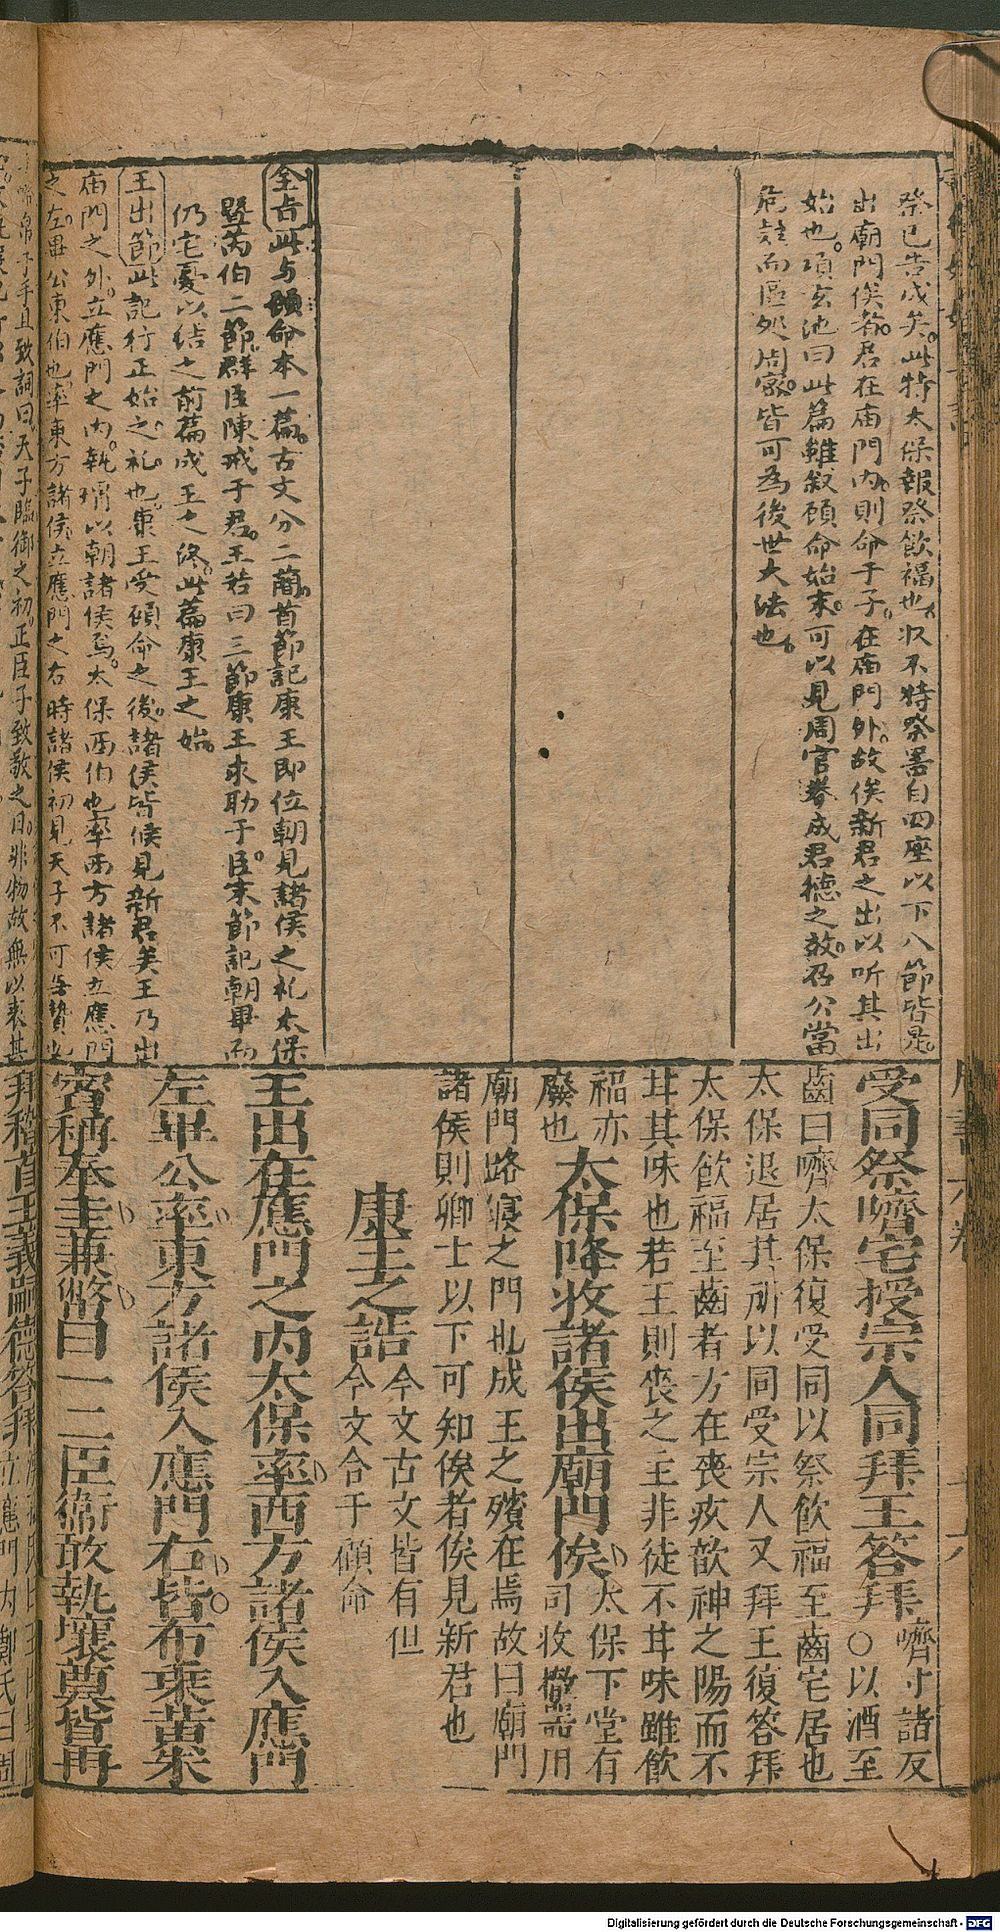 祭已告成矣。此特太保報祭飲福也。収不特祭畧自四座以下八節皆是
出廟門俟者。君在庙門內。則命于子。在庙門外。故俟新君之出以听其出
始也。項玄池曰此篇雖叙顾命始末。可以見周官養成君德之效。召公當
危疑而區処周家。皆可為後世大法也。
全旨此与顧命本一篇。古文分二萹。首節記康王即位朝見諸侯之礼太保
暨芮伯二節群臣陳戒于君。王若曰三節康王求助于臣。末節記朝畢而
仍宅憂以结之前篇成王之終。此篇康王之始。
王出節此記行正始之礼也。康王受顾命之後。諸侯皆候見新君美王乃出
庙門之外。立應門之內。執瑁以朝諸侯焉。太保西伯也率西方諸侯立應門
之左。畢公東伯也率東方諸侯立應門之右時諸侯初見天子不可無贄也
受同祭嚌宅授宗人同拜王答拜 嚌寸諸反
○以酒至
齒曰嚌太保復受同以祭飲福至齒宅居也
太保退居其所以同受宗人又拜王復答拜
太保飲福至齒者方在喪疚歆神之陽而不
甘其味也若王則喪之主非徒不甘味雖飲
福亦
廢也 太保降收諸侯出廟門俟 太保下堂有
司收撤器用
廟門路寢之門也成王之殯在焉故曰廟門
諸侯則卿士以下可知俟者俟見新君也
康王之誥 今文古文皆有但
今文合于顧命
王出在應門之內太保率西方諸侯入應門
左畢公率東方諸侯入應門右皆布乘黃朱
賓稱奉圭兼幣曰一二臣衞敢執壤奠皆再
拜稽首王義嗣德答拜
Digitalisierung gefördert durch die Deutsche Forschungsgemeinschaft - DFG